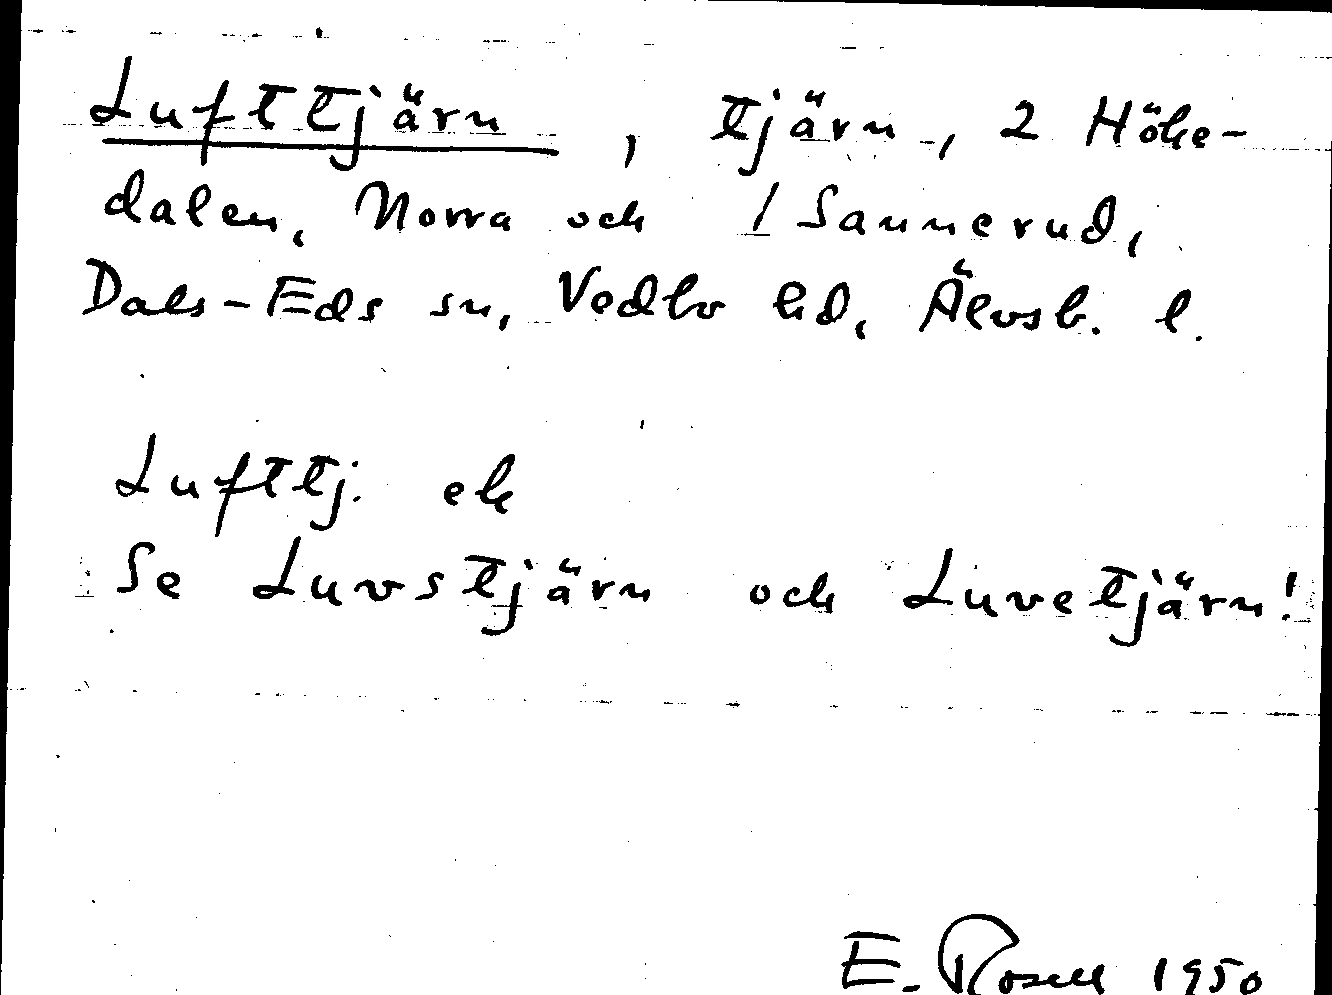 Lufttjärn, tjärn, 2 Höke-
dalen, Norra och 1 Sannerud,
Dals-Eds sn, Vedbo hd, Älvsb. l.
Lufttj. ek
Se Luvstjärn och Luvetjärn!
E. Rosell 1950